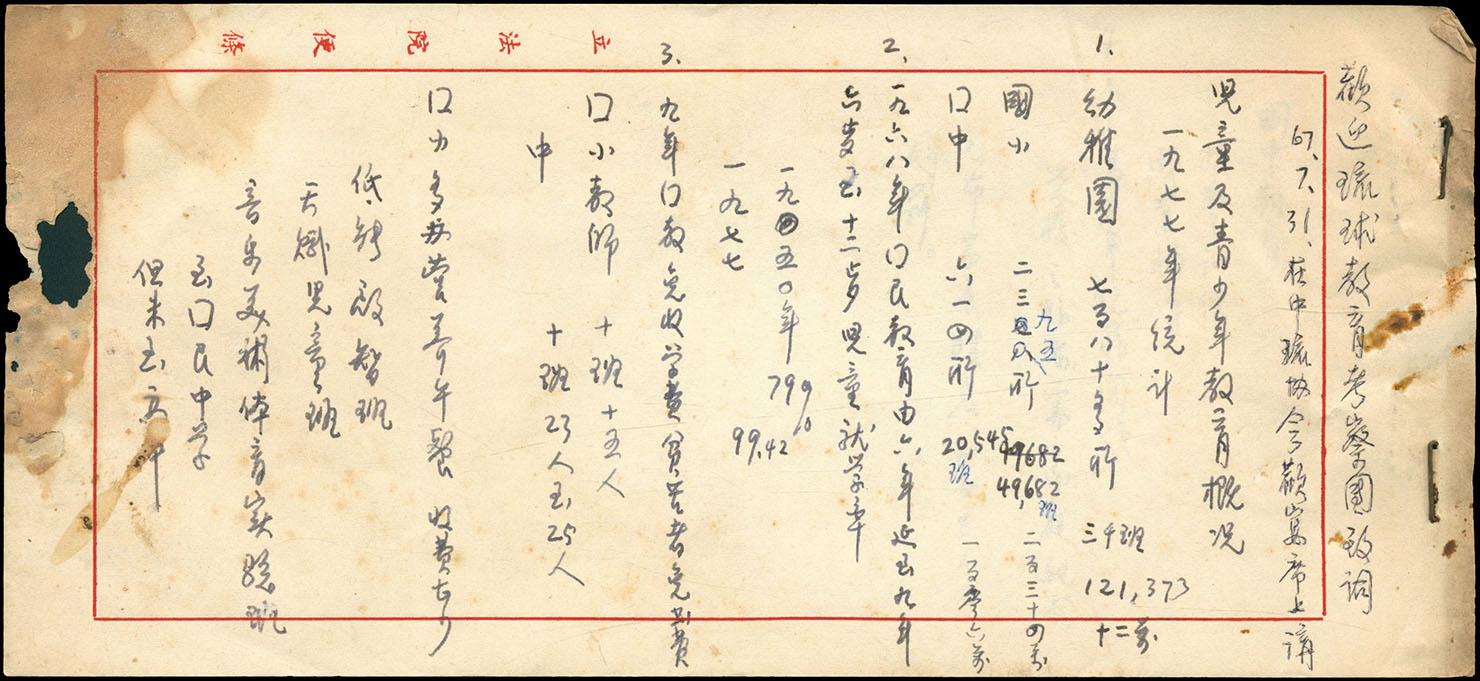 立法院便條
歡迎琉球教育考察團致詞
67、7、31、在中琉協会歡宴席上講
児童及青少年教育概況
一九七七年統計
1、幼稚園 七百八十多所 三千班 121,373 十二萬
國小 二三九五所 49682 49,682班 二百三十四万
口中 六一四所 20,545班 一百零六萬
2、一九六八年口民教育由六年延至九年
六岁至十二岁児童就学率
一九五〇年 79.98
一九七七 99.42
3、九年口教免收学費貧苦者免書費
口小教師 十班 十五人
中 十班 23人至25人
口力多办营养午餐 收費
低能啟智班
天才児童班
音乐美術体育实驗班
至口民中学
但未至高中